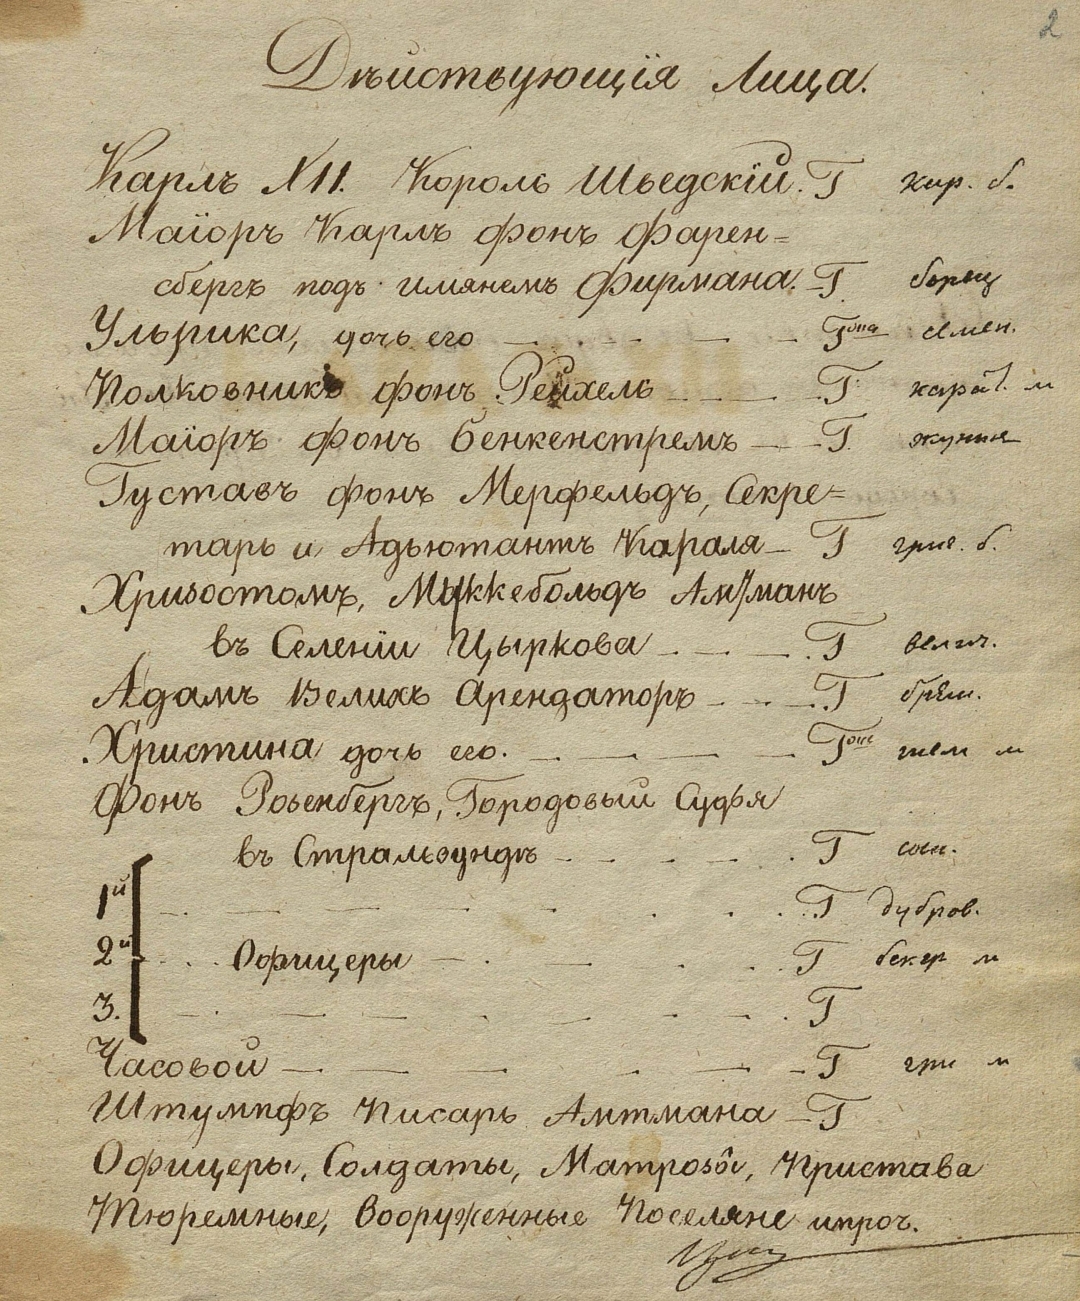 2
Дѣйствующія Лица.
Карлъ XII. Король Шведскій. Г кар. б.
Маіоръ Карлъ фонъ Фарен=
сбергъ подъ имянемъ Фирмана. Г. борец
Ульрика, дочь его Гопа семен.
Полковникъ фонъ Рейхель Г. карат. м
Маіоръ фонъ Бенкенстремъ Г.
Густавъ фонъ Мерфельдъ, Секре=
тарь и Адьютантъ Караля Г григ. б.
Хризостомъ, Муккебольдъ Амтманъ
въ Селеніи Цыркова Г велич.
Адамъ Великъ Арендаторъ Г брян.
Христина дочь его. Г м
Фонъ Розенбергъ, Городовый Судья
въ Стральзундѣ Г сосн.
1й Г дубров.
2й Офицеры Г бекер м
3. Г
Часовой Г гри м
Штумпфъ Писарь Амтмана Г
Офицеры, Солдаты, Матрозы, Пристава
Тюремные, Вооруженные Поселяне ипроч.